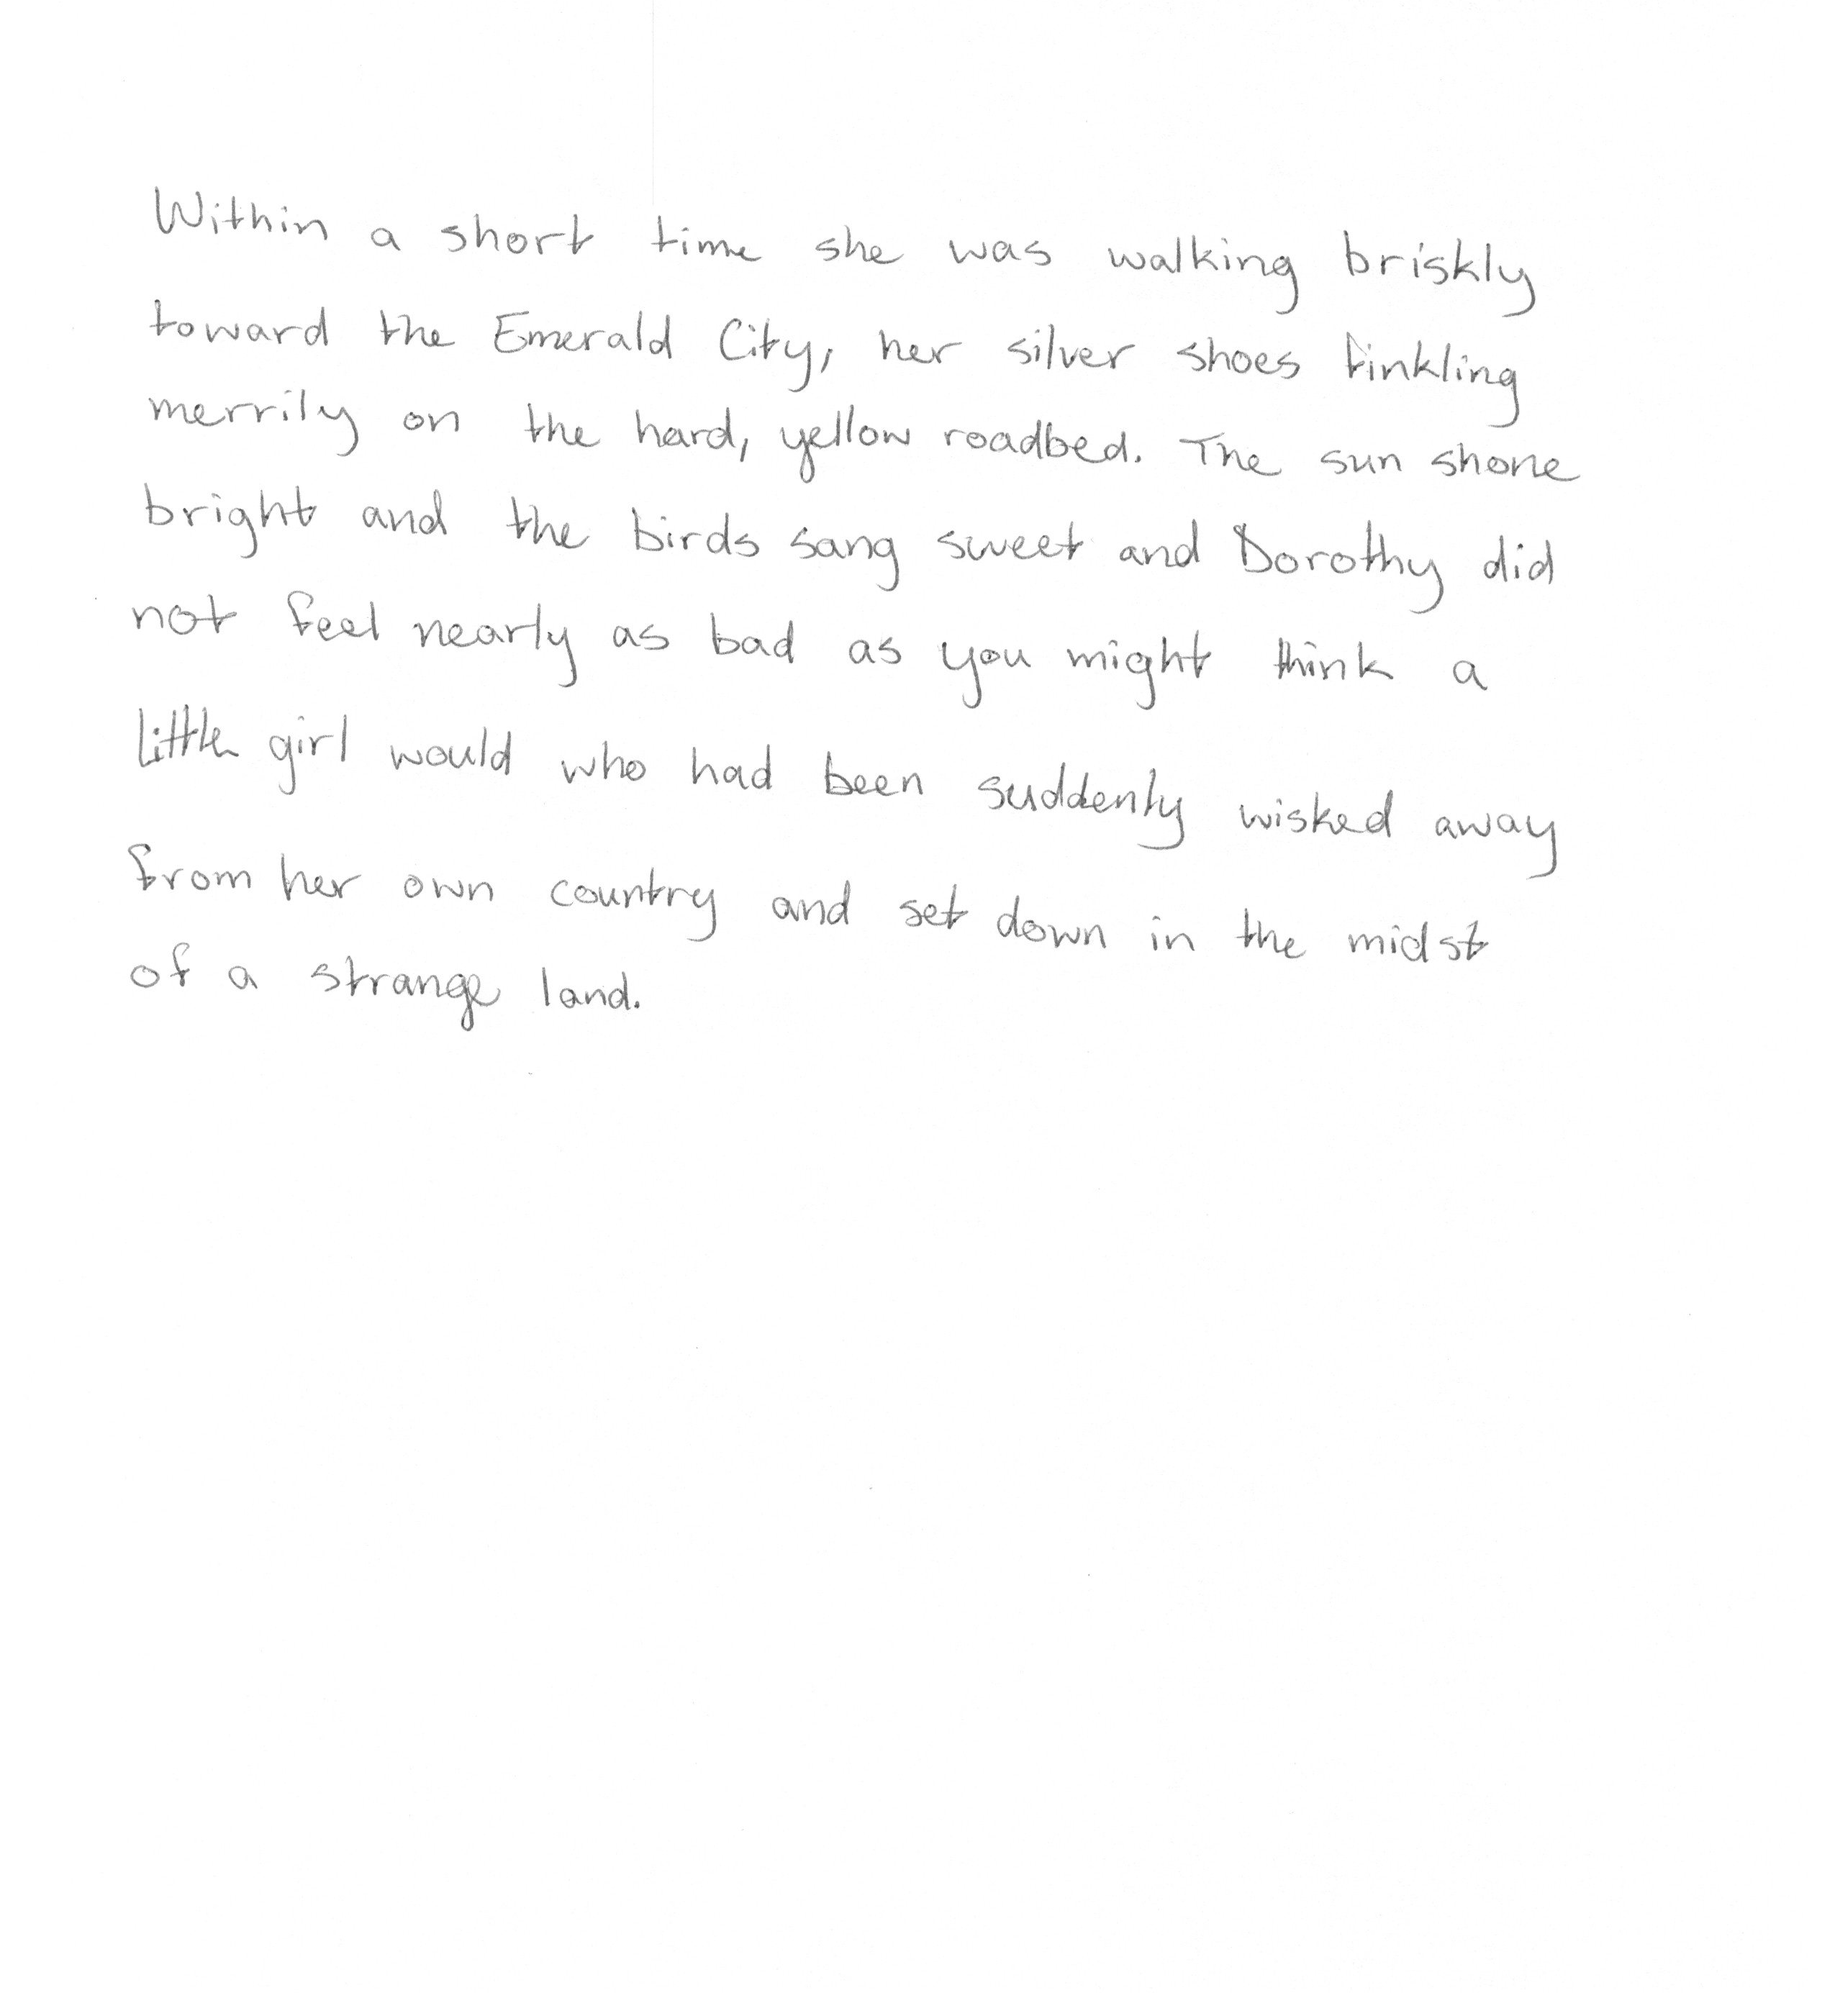 Within a short time she was walking briskly
toward the Emerald City, her silver shoes tinkling
merrily on the hard, yellow roadbed. The sun shone
bright and the birds sang sweet and Dorothy did
not feel nearly as bad as you might think a
little girl would who had been suddenly wisked away
from her own country and set down in the midst
of a strange land.